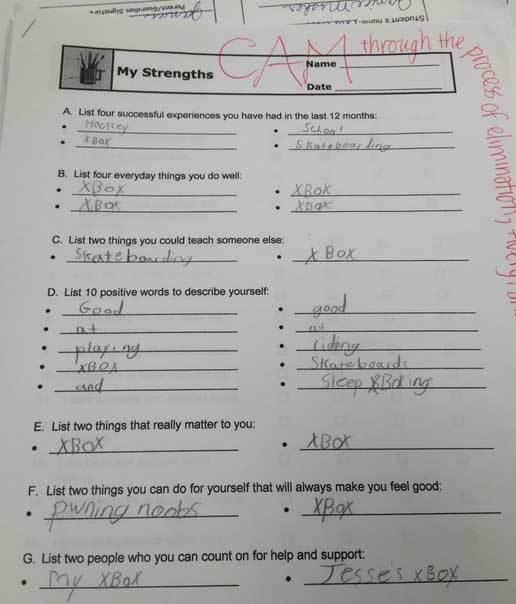 Parent/Guardian Signature
Student's name:
CAM through the process of elimination,
My Strengths
Name
Date
A. List four successful experiences you have had in the last 12 months:
• Hockey • School
• XBOX • Skateboarding
B. List four everyday things you do well:
• XBOX • XBOX
• XBOX • XBOX
C. List two things you could teach someone else:
• Skateboarding • XBOX
D. List 10 positive words to describe yourself:
• Good • good
• at • at
• playing • riding
• XBOX • Skateboards
• and • Sleep XBoxing
E. List two things that really matter to you:
• XBOX • XBOX
F. List two things you can do for yourself that will always make you feel good:
• pwning noobs • XBOX
G. List two people who you can count on for help and support:
• My XBOX • Jesse's XBOX